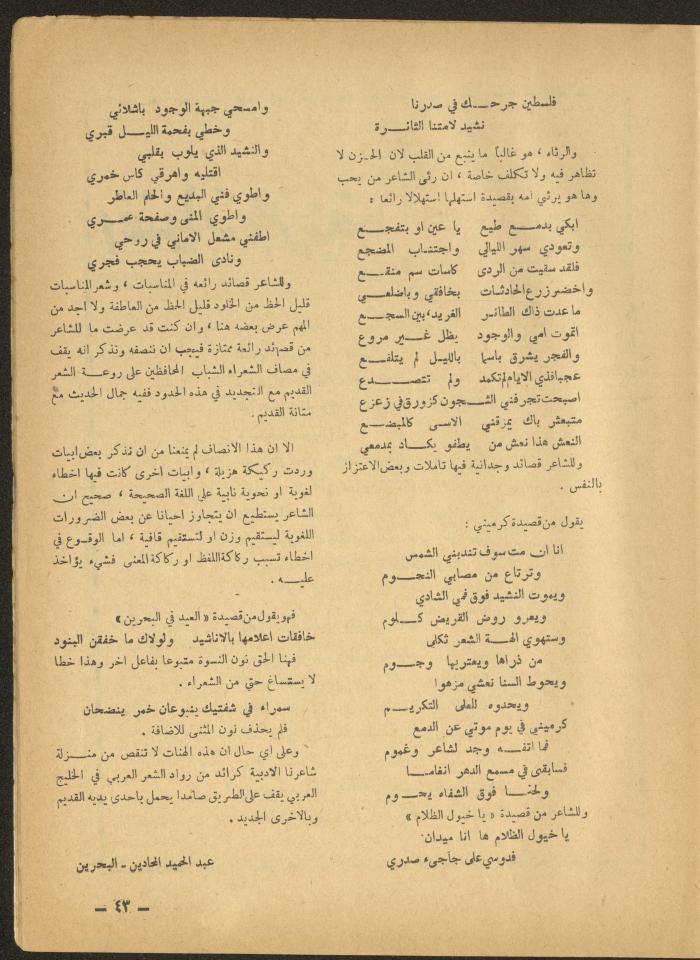 فلسطين جرحك في صدرنا
نشيد لامتنا الثائرة
والرثاء ، هو غالبا ما ينبع من القلب لان الحزن لا
تظاهر فيه ولا تكلف خاصة ، ان رثى الشاعر من يحب
وها هو يرثي امه بقصيدة استهلها استهلالا رائعا :
ابكي بدمع طيع يا عين او بتفجع
وتعودي سهر الليالي واجتناب المضجع
فلقد سقيت من الردى كاسات سم منقع
واخضر زرع الحادثات بخافقي وباضلعي
ما عدت ذاك الطائر الغريد، بين السجع
اتموت امي والوجود يظل غير مروع
والفجر يشرق باسما بالليل لم يتلفع
عجبا فذي الايام لم تكمد ولم تتصدع
اصبحت تجرفني الشجون كزورق في زعزع
متبعثر باك يمزقني الاسى كالمبضع
النعش هذا نعش من يطفو بكاد بمدمعي
وللشاعر قصائد وجدانية فيها تاملات وبعض الاعتزاز
بالنفس .
يقول من قصيدة كرميني :
انا ان مت سوف تندبني الشمس
وترتاع من مصابي النجوم
ويموت النشيد فوق فمي الشادي
ويعرو روض القريض كلوم
وستهوي الهة الشعر ثكلى
من ذراها ويعتريها وجوم
ويحوط السنا نعشي مزهوا
ويحدوه للعلى التكريم
كرميني في يوم موتي عن الدمع
فما اتفه وجد لشاعر وغموم
فسابقى في مسمع الدهر انغاما
ولحنا فوق الشفاه يحوم
وللشاعر من قصيدة « يا خيول الظلام »
يا خيول الظلام ها انا ميدان
فدوسي على جآجىء صدري
وامسحي جبهة الوجود باشلائي
وخطي بفحمة الليل قبري
والنشيد الذي يلوب بقلبي
اقتليه واهرقي كاس خمري
واطوي فني البديع والحلم العاطر
واطوي المنى وصفحة عمري
اطفئي مشعل الاماني في روحي
ونادى الضباب يحجب فجري
وللشاعر قصائد رائعه في المناسبات ، وشعر المناسبات
قليل الحظ من الخلود قليل الحظ من العاطفة ولا اجد من
المهم عرض بعضه هنا ، وان كنت قد عرضت ما للشاعر
من قصائد رائعة ممتازة فيجب ان ننصفه ونذكر انه يقف
في مصاف الشعراء الشباب المحافظين على روعة الشعر
القديم مع التجديد في هذه الحدود ففيه جمال الحديث مع
متانة القديم .
الا ان هذا الانصاف لم يمنعنا من ان نذكر بعض ابيات
وردت ركيكة هزيلة ، وابيات اخرى كانت فيها اخطاء
لغوية او نحوية نابية على اللغة الصحيحة ، صحيح ان
الشاعر يستطيع ان يتجاوز احيانا عن بعض الضرورات
اللغوية ليستقيم وزن او لتستقيم قافية ، اما الوقوع في
اخطاء تسبب ركاكة اللفظ او ركاكة المعنى فشيء يؤاخذ
عليه .
فهو يقول من قصيدة « العيد في البحرين »
خافقات اعلامها بالاناشيد ولولاك ما خفقن البنود
فهنا الحق نون النسوة متبوعا بفاعل اخر وهذا خطا
لا يستساغ حتى من الشعراء .
سمراء في شفتيك ينبوعان خمر ينضحان
فلم يحذف نون المثنى للاضافة .
وعلى اي حال ان هذه الهنات لا تنقص من منزلة
شاعرنا الادبية كرائد من رواد الشعر العربي في الخليج
العربي يقف على الطريق صامدا يحمل باحدى يديه القديم
وبالاخرى الجديد .
عبد الحميد المحادين - البحرين
— ٤٣ —